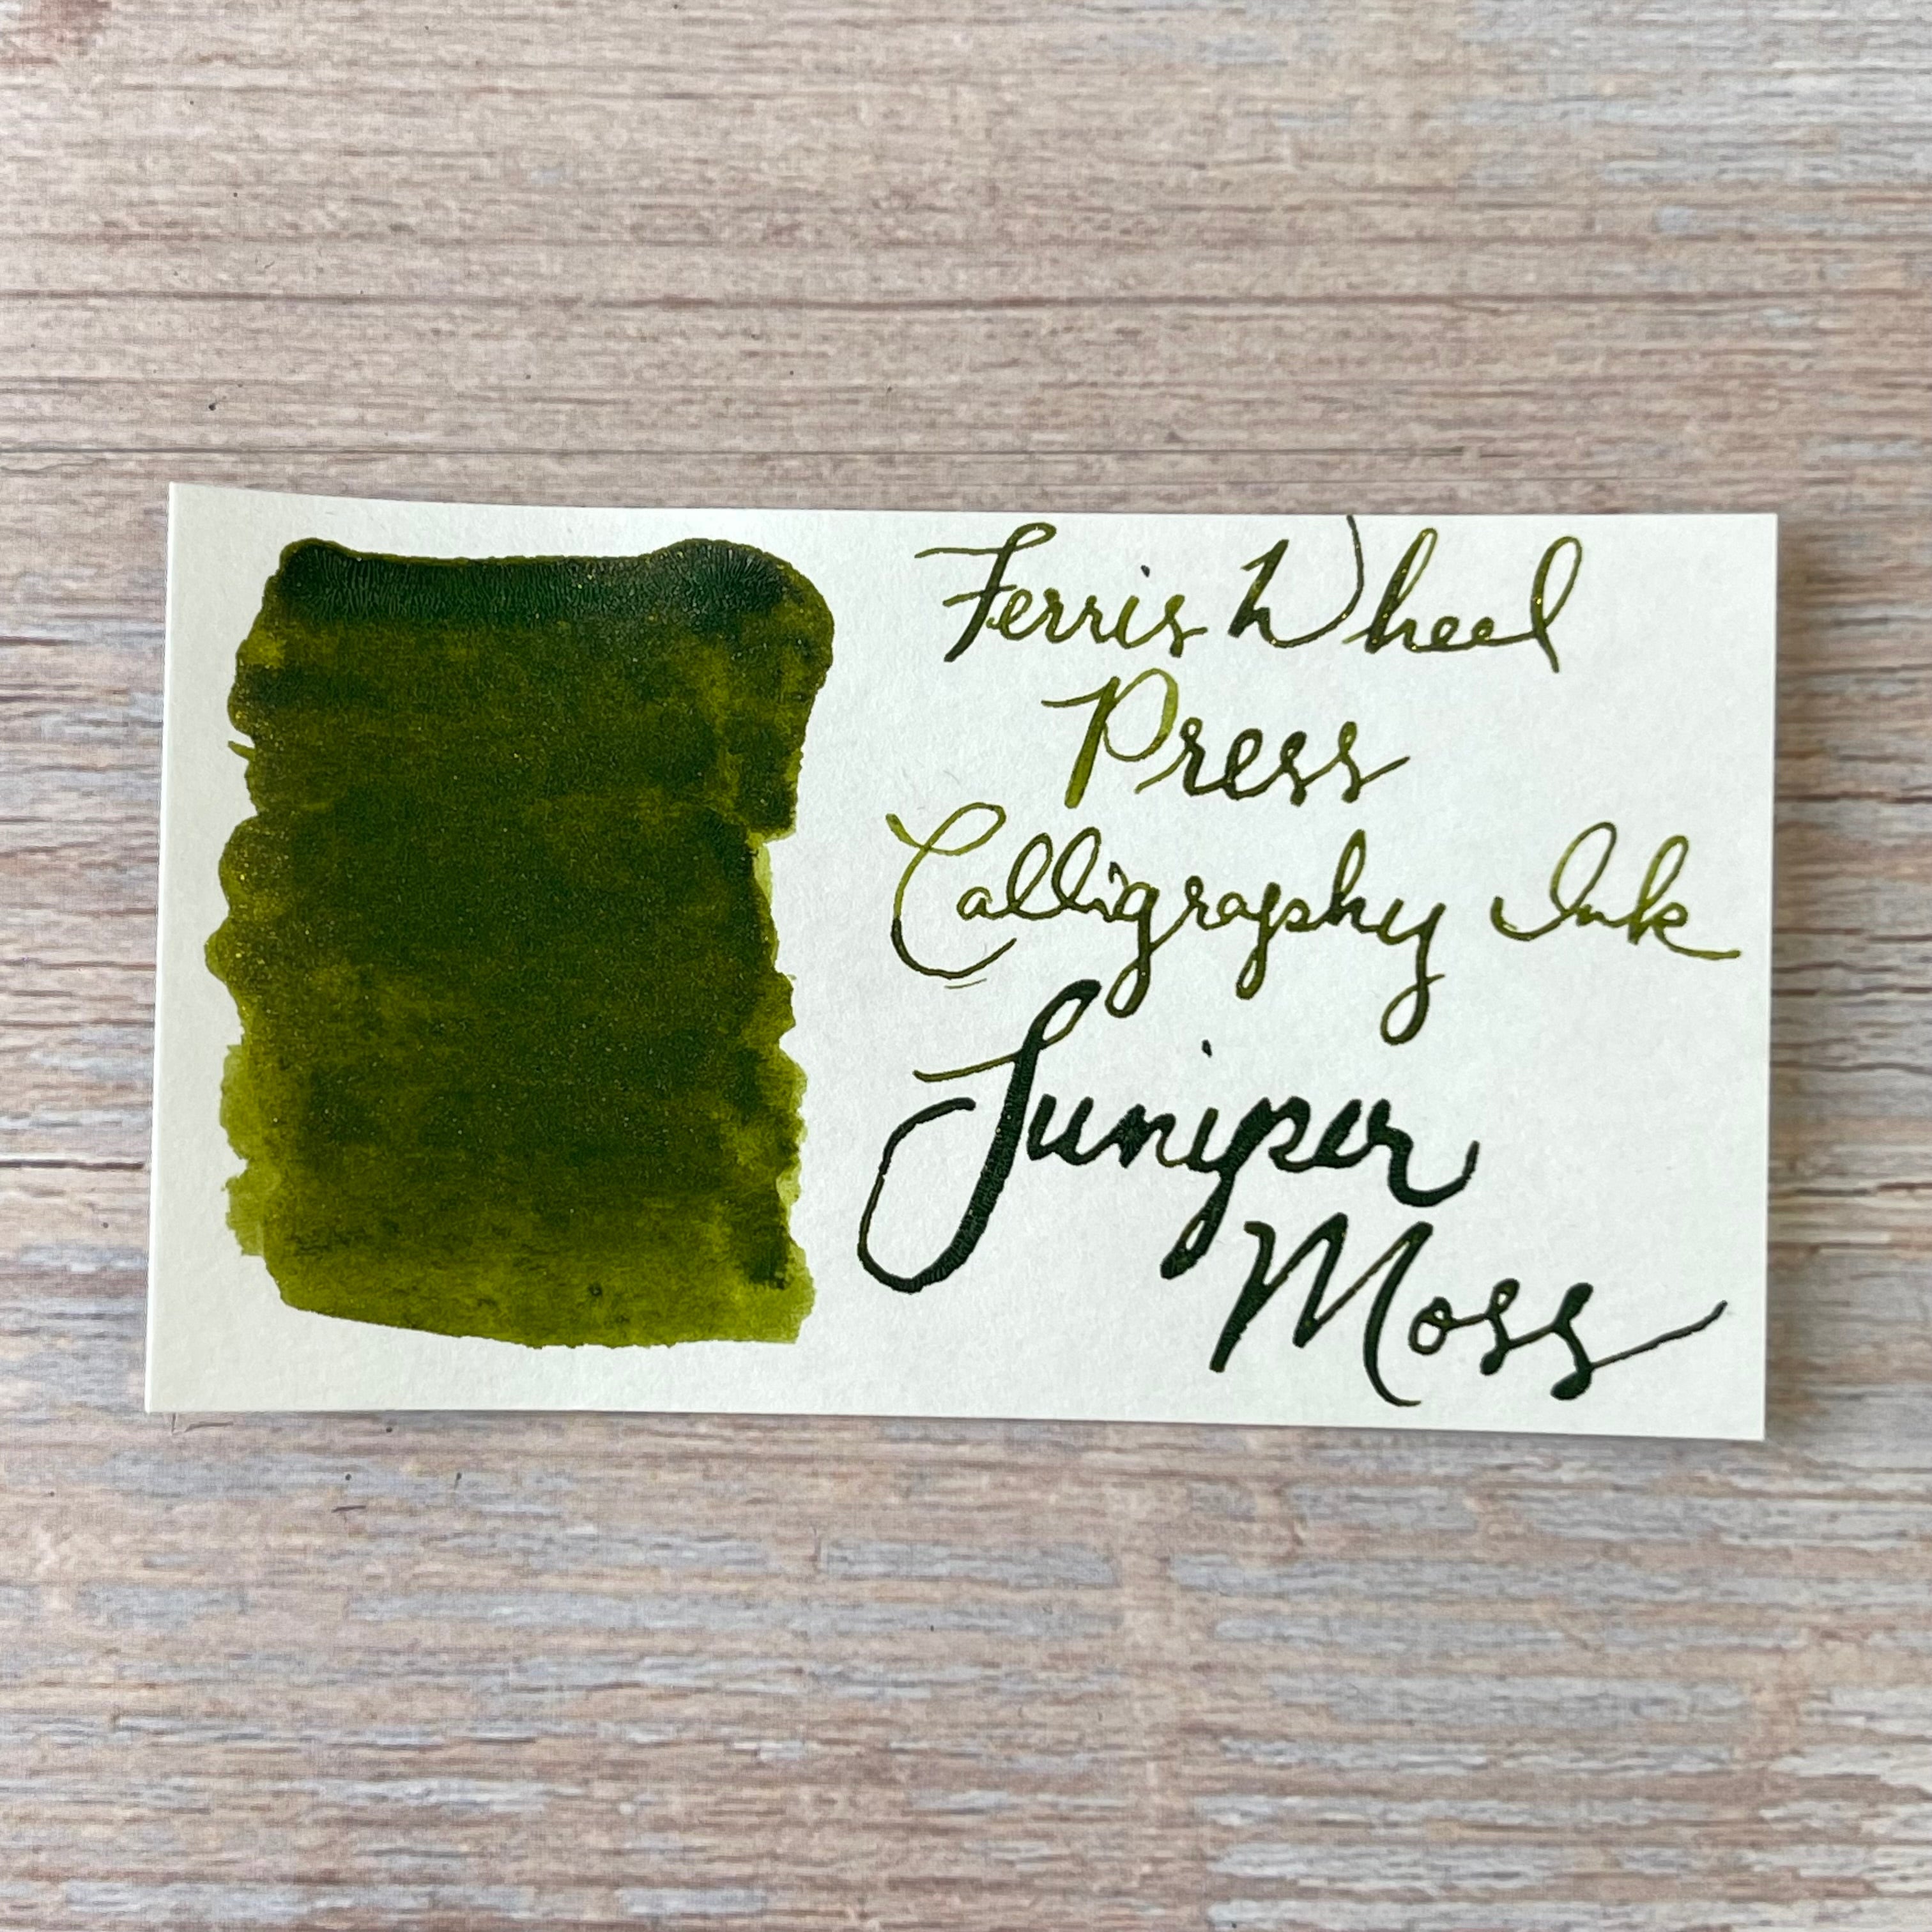 Ferris Wheel
Press
Calligraphy Ink
Juniper
Moss